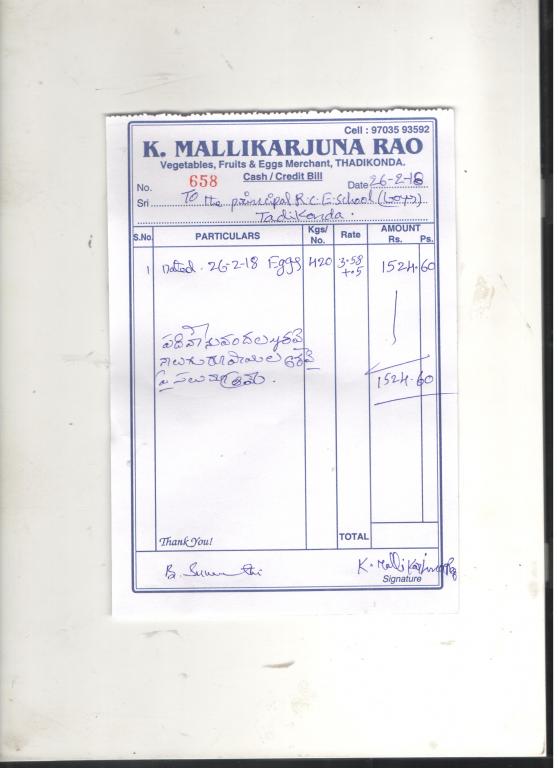 Cell : 97035 93592
K. MALLIKARJUNA RAO
Vegetables, Fruits & Eggs Merchant, THADIKONDA.
Cash / Credit Bill
No. 658 Date 26-2-18
Sri To the principal R.C.E. School (boys)
Tadikonda.
S.No. PARTICULARS Kgs/ No. Rate AMOUNT Rs. Ps.
1 Dated. 26-2-18 Eggs 420 3.58 1524.60
+.5
పదిహేనువందల ఇరవై
నాలుగు రూపాయల అరవై
పైసలు మాత్రమే.
1524.60
Thank You! TOTAL
K. Mallikarjuna Rao
Signature